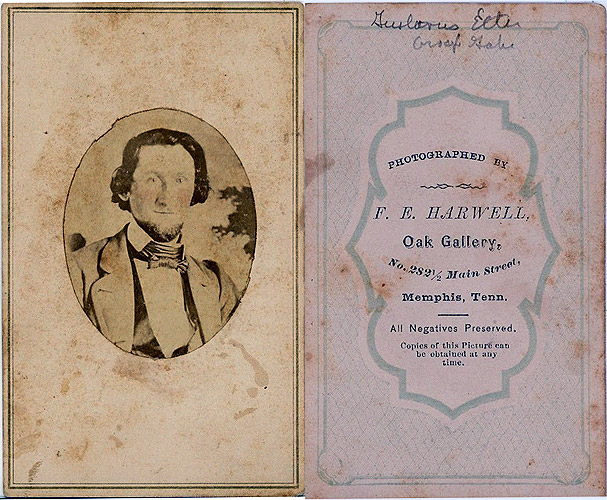 Gustavus
PHOTOGRAPHED BY
F. E. HARWELL,
Oak Gallery,
No. 282½ Main Street,
Memphis, Tenn.
All Negatives Preserved.
Copies of this Picture can
be obtained at any
time.